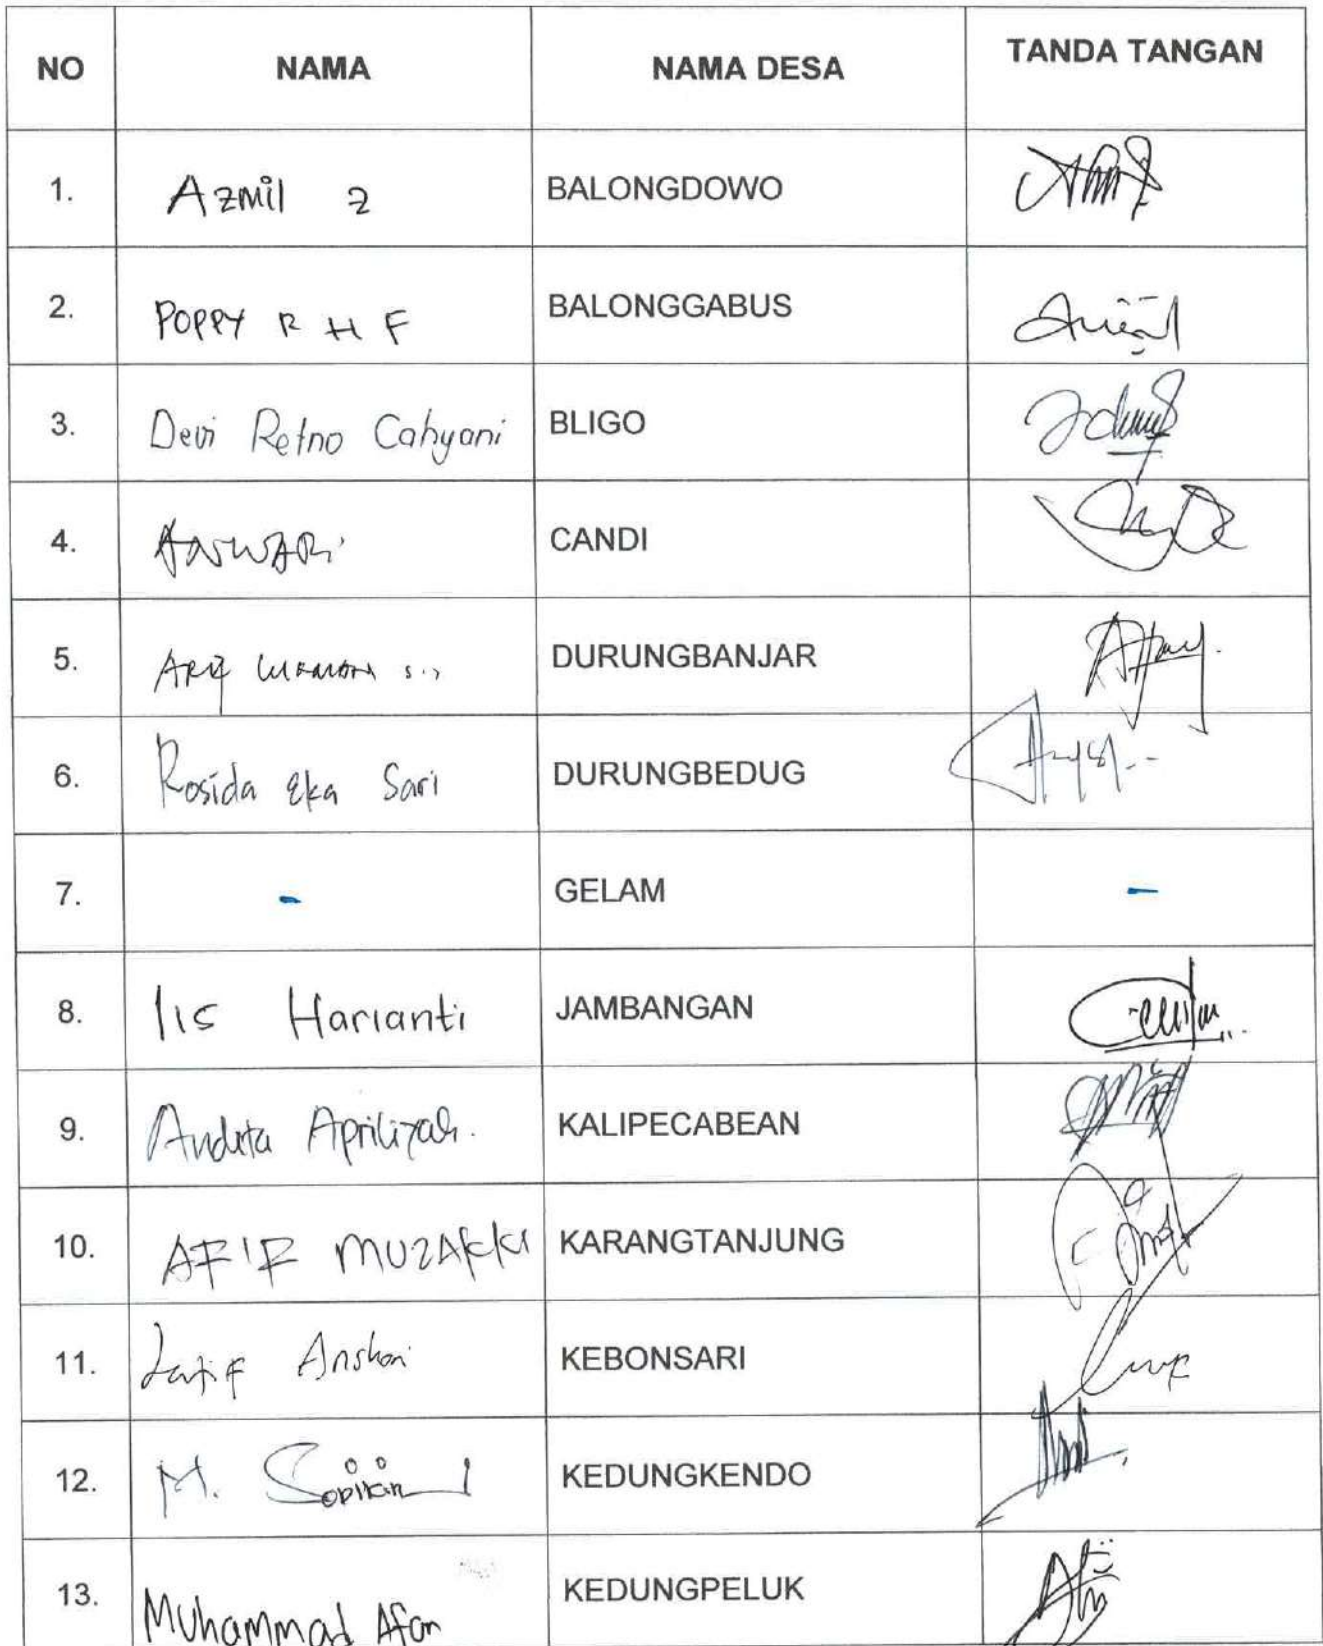 NO NAMA NAMA DESA TANDA TANGAN
1. Azmil Z BALONGDOWO
2. POPPY R H F BALONGGABUS
3. Devi Retno Cahyani BLIGO
4. ANWARI CANDI
5. ARIF S.. DURUNGBANJAR
6. Rosida Eka Sari DURUNGBEDUG
7. - GELAM -
8. Iis Harianti JAMBANGAN
9. Andita Aprilizah. KALIPECABEAN
10. AFIF MUZAKKI KARANGTANJUNG
11. Latif Anshori KEBONSARI
12. M. Sodikin KEDUNGKENDO
13. Muhammad Afan KEDUNGPELUK